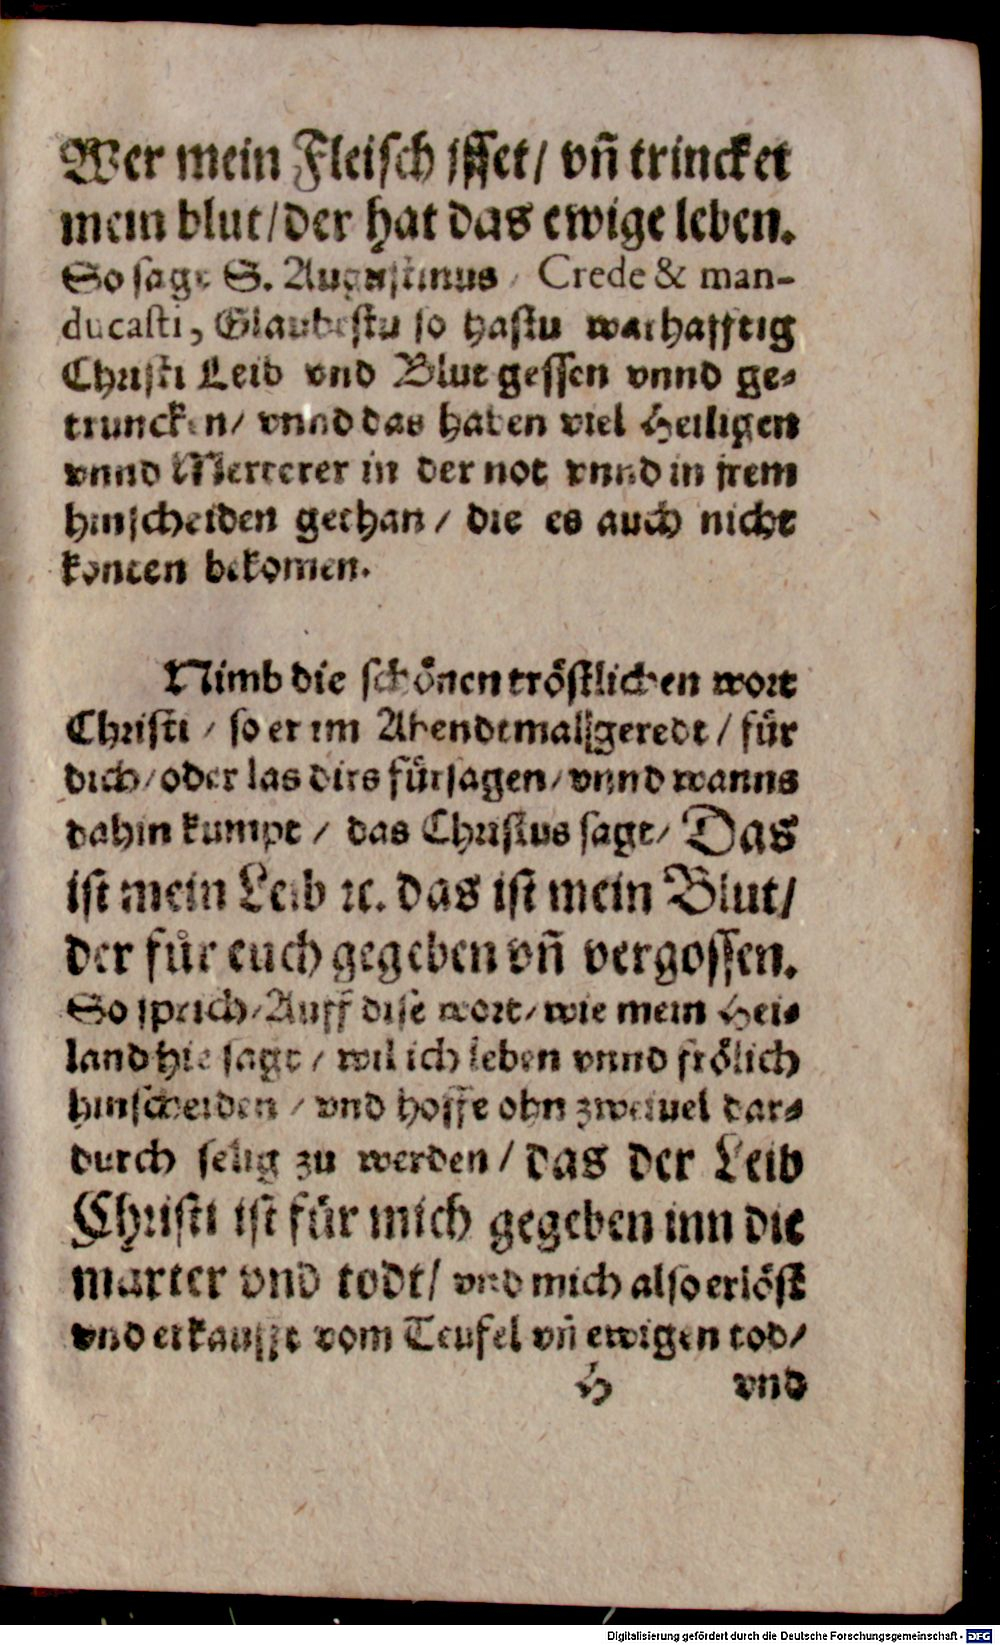 Wer mein Fleisch isset/ vñ trincket
mein blut/ der hat das ewige leben.
So sagt S. Augustinus/ Crede & man-
ducasti, Glaubestu so hastu warhafftig
Christi Leib vnd Blut gessen vnnd ge-
truncken/ vnnd das haben viel Heiligen
vnnd Merterer in der not vnnd in jrem
hinscheiden gethan/ die es auch nicht
konten bekomen.
Nimb die schönen tröstlichen wort
Christi/ so er im Abendtmal geredt/ für
dich/ oder las dirs fürsagen/ vnnd wanns
dahin kumpt/ das Christus sagt/ Das
ist mein Leib ꝛc. das ist mein Blut/
der für euch gegeben vñ vergossen.
So sprich/ Auff dise wort/ wie mein Hei-
land hie sagt/ wil ich leben vnnd frölich
hinscheiden/ vnd hoffe ohn zweiuel dar-
durch selig zu werden/ das der Leib
Christi ist für mich gegeben inn die
marter vnd todt/ vnd mich also erlöst
vnd erkaufft vom Teufel vñ ewigen tod/
H vnd
Digitalisierung gefördert durch die Deutsche Forschungsgemeinschaft - DFG